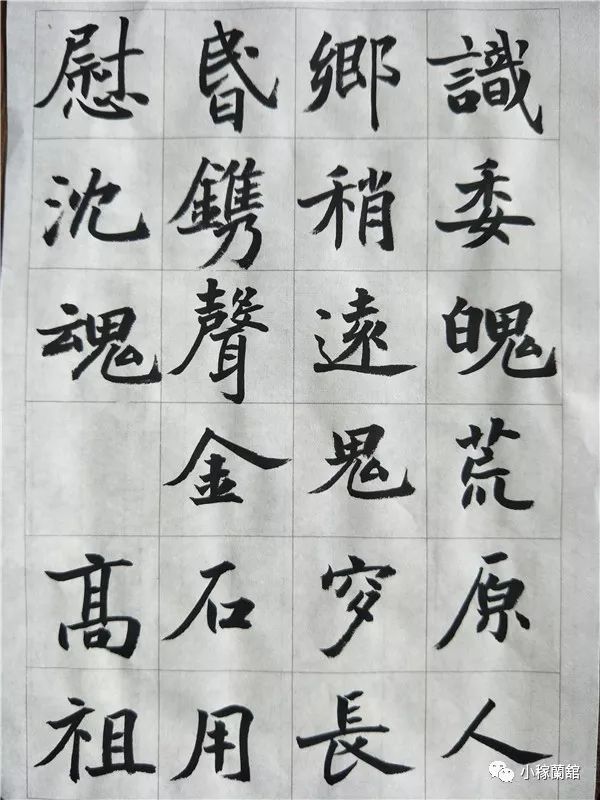 識委魄荒原人
鄉稍遠鬼穸長
昬鎸聲金石用
慰沈魂 髙祖
小稼蘭舘